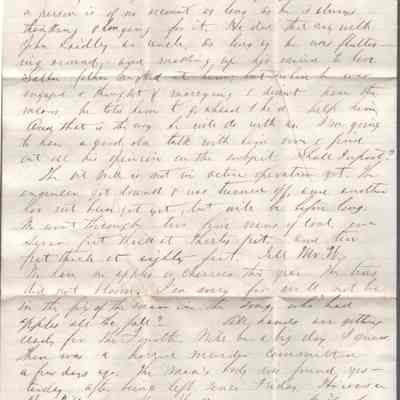 a person is of no account as long as he is always
thinking & longing for it. He did that way with
John Laidley, an uncle, as long as he was flutter-
ing around, and making up his mind to live
father laughed at him, but when he was
engaged & thought of marrying & didn't have the
means, he told him to go ahead & he'd help him.
And that is the way he will do with us. I'm going
to have a good old talk with him over & find
out all his opinion on the subject. Shall I report?
The oil well is not in active operation yet. The
engineer got drunk & was turned off, and another
has not been got yet, but will be before long.
He went through two fine veins of coal, one
feet thick at thirty feet, and two
feet thick at eighty feet. Tell Mr.
We have no apples or cherries this year. The trees
did not bloom. I'm sorry for we'll not be
in the fix of the man in the song, who "had
apples all the fall"? All hands are getting
ready for the Fourth. Will be a big day I guess.
There was a horrid murder committed
a few days ago. The man's body was found yes-
terday, after being left since Friday. He was